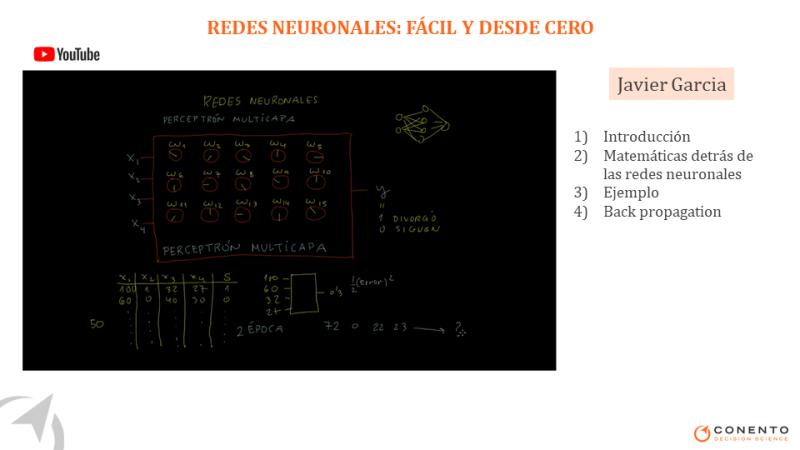 REDES NEURONALES: FÁCIL Y DESDE CERO
YouTube
REDES NEURONALES
PERCEPTRÓN MULTICAPA
W1 W2 W3 W4 W5
X1
X2
W6 W7 W8 W9 W10
X3
W11 W12 W13 W14 W15
X4
y
"
1 DIVORCIÓ
0 SIGUEN
PERCEPTRÓN MULTICAPA
X1 X2 X3 X4 S
100 1 32 27 1
60 0 40 30 0
50
100
60
32
27
0'3
1/2 (error)²
2 ÉPOCA
72 0 22 23 → ?
Javier Garcia
1) Introducción
2) Matemáticas detrás de
las redes neuronales
3) Ejemplo
4) Back propagation
CONENTO
DECISION SCIENCE